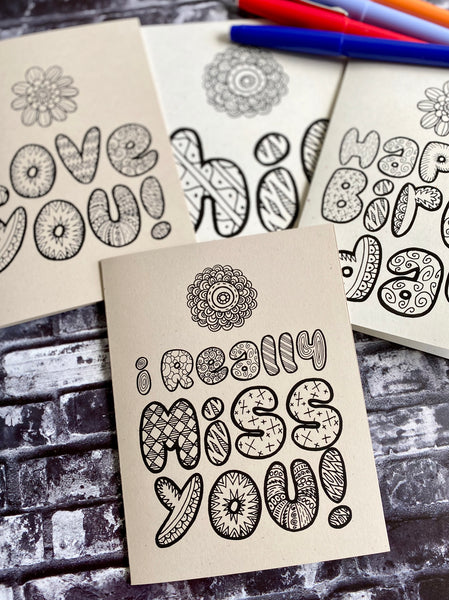 Love
YOU!
hi!
HAPP
BiRT
Da
i REally
MiSS
YOU!